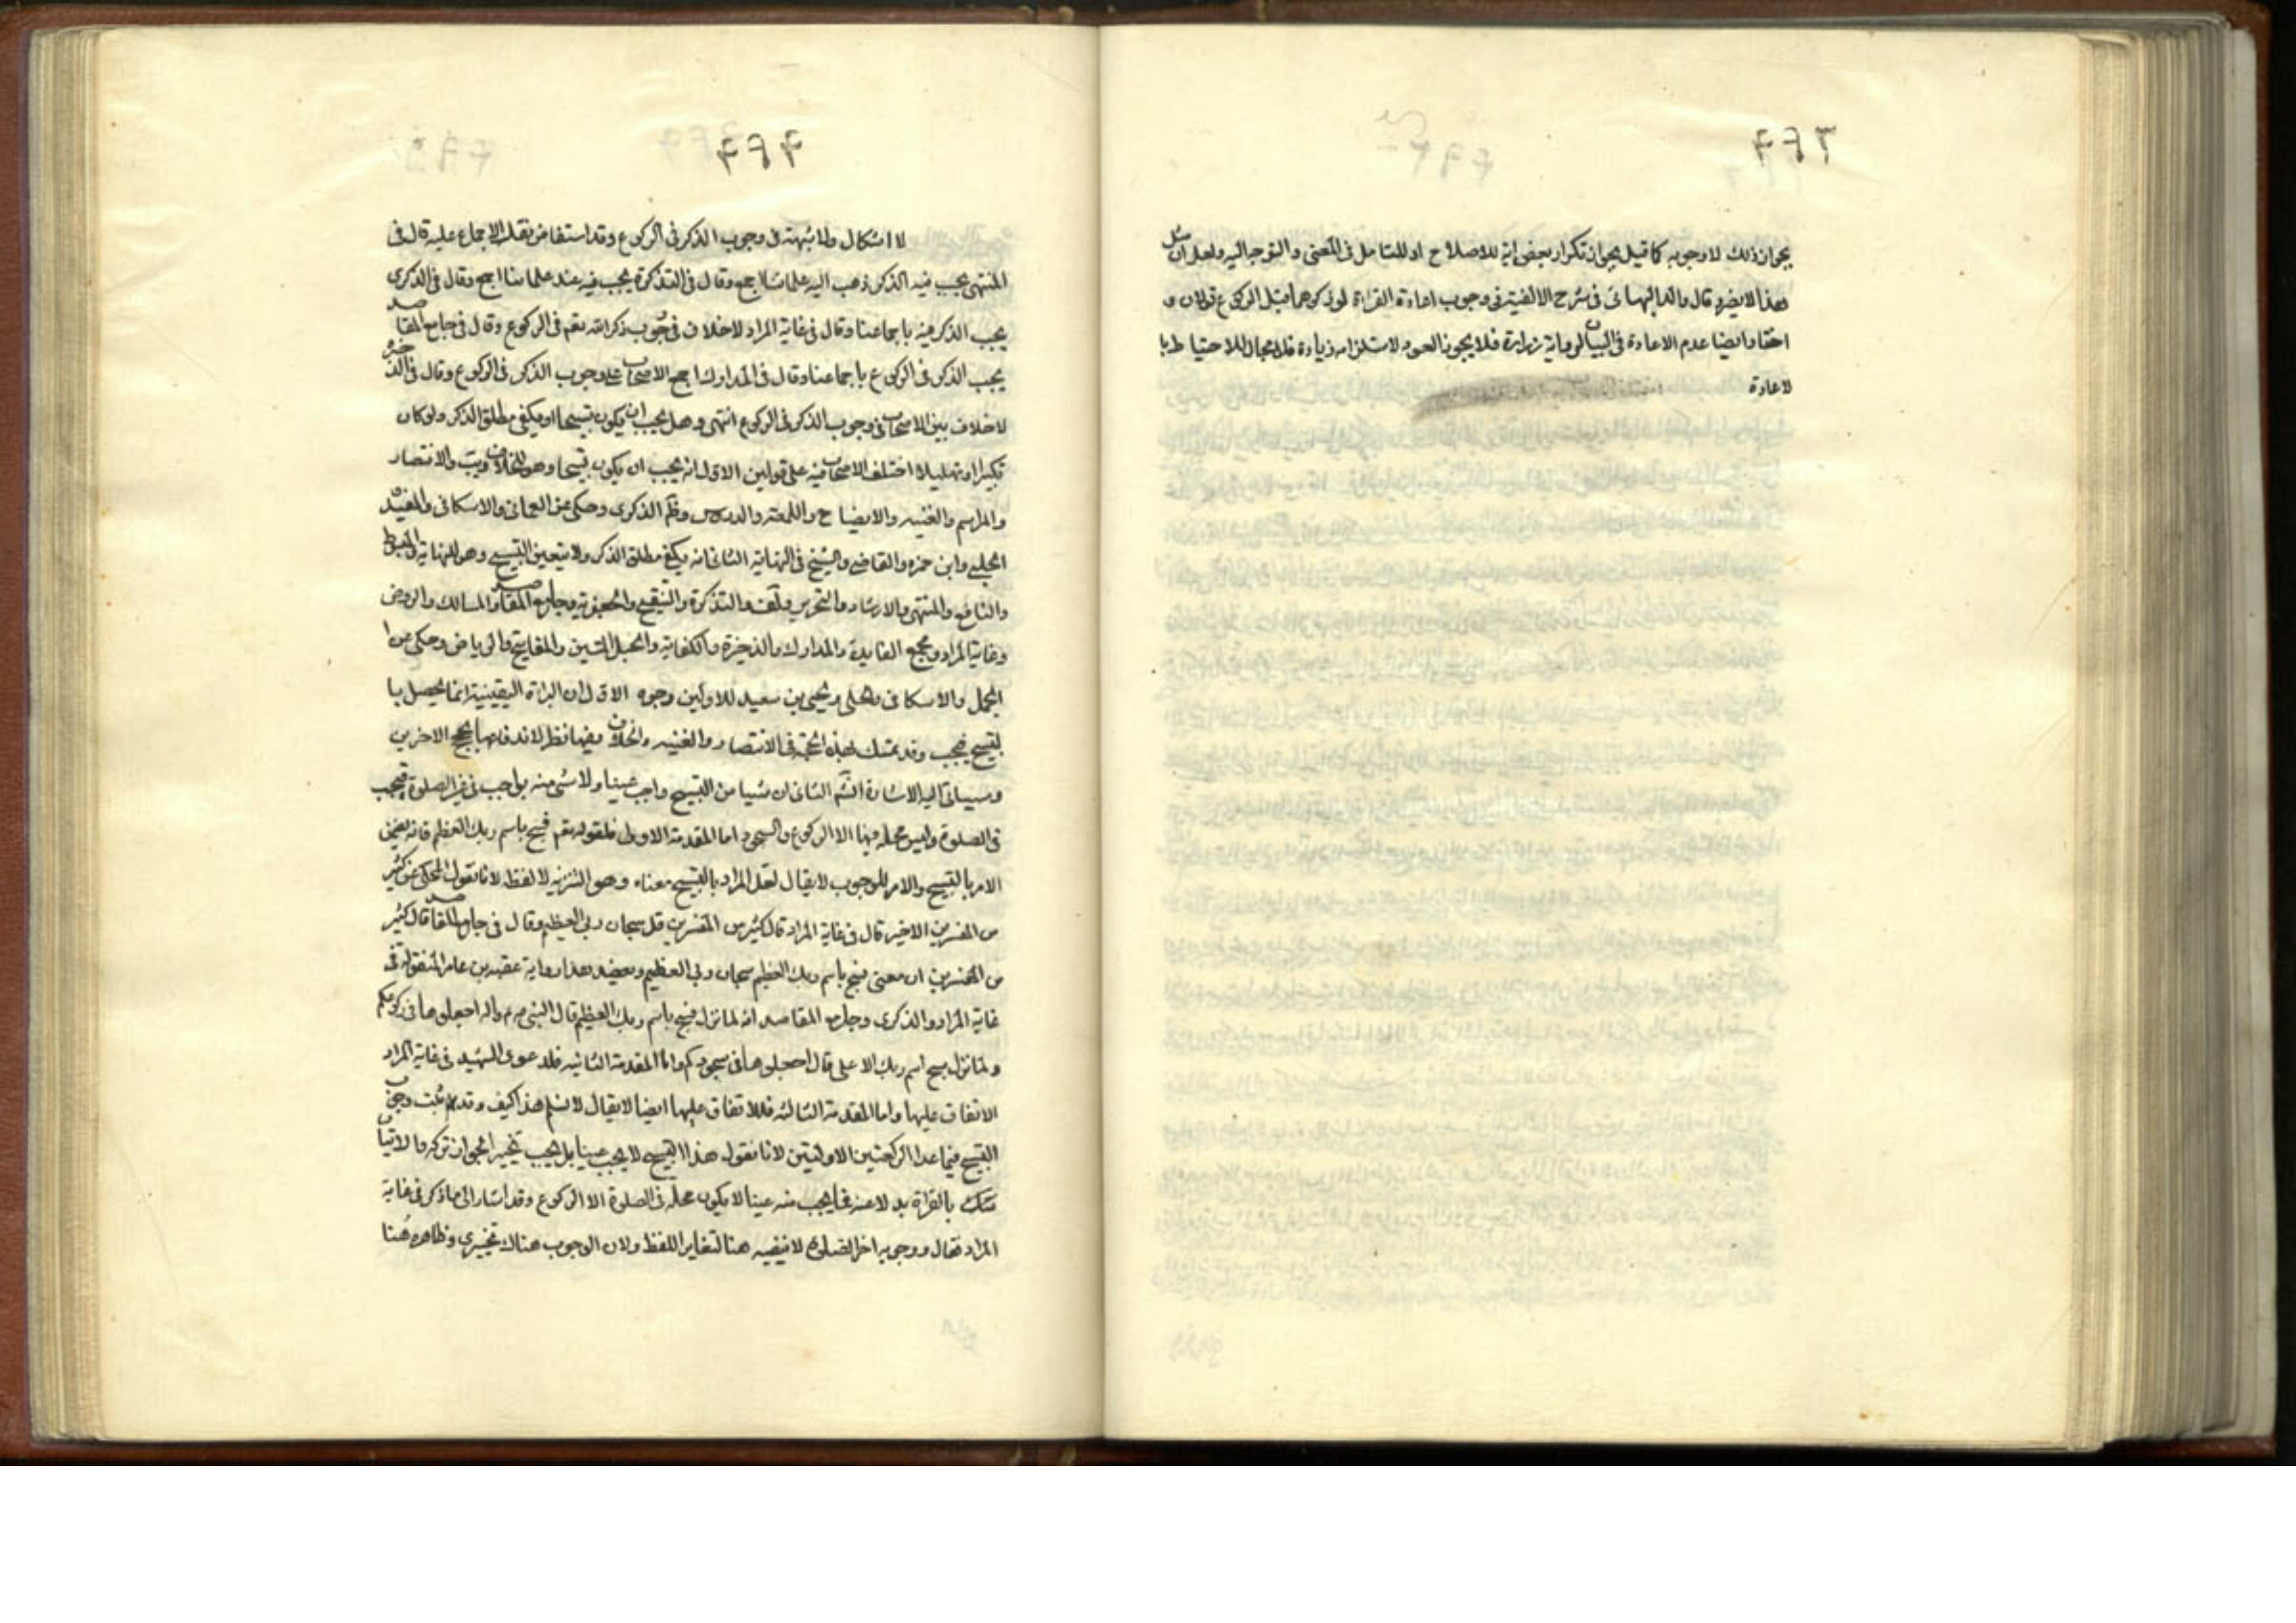 ۴۶۳
يجوز ذلك لا وجوبه كما قيل بجواز تكرار بعض اية للاصلاح او للتامل فى المعنى والتوجه اليه ولعل ان مثل
هذا لا يضر وقال والد البهائى فى شرح الالفية فى وجوب اعادة القراءة لو ذكرهما قبل الركوع قولان و
اختار ايضا عدم الاعادة فى البيان لرواية زرارة فلا يجوز العود لاستلزامه زيادة فلا مجال للاحتياط با
لاعادة
۴۶۴
لا اشكال ولا شبهة فى وجوب الذكر فى الركوع وقد استفاض نقل الاجماع عليه قال فى
المنتهى يجب فيه الذكر ذهب اليه علمائنا اجمع وقال فى التذكرة يجب فيه عند علمائنا اجمع وقال فى الذكرى
يجب الذكر فيه باجماعنا وقال فى غاية المراد لا خلاف فى وجوب ذكر الله تعم فى الركوع وقال فى جامع المقاصد
يجب الذكر فى الركوع باجماعنا وقال فى المدارك اجمع الاصحاب على وجوب الذكر فى الركوع وقال فى الذخيرة
لا خلاف بين الاصحاب فى وجوب الذكر فى الركوع انتهى وهل يجب ان يكون تسبيحا او يكفى مطلق الذكر ولو كان
تكبيرا او تهليلا اختلف الاصحاب فيه على قولين الاول انه يجب ان يكون تسبيحا وهو للخلاف ويب والانتصار
والمراسم والغنيه والايضاح واللمعة والدروس وظم الذكرى وحكى عن العمانى والاسكافى والمفيد
الحلبى وابن حمزه والقاضى والشيخ فى النهاية الثانى انه يكفى مطلق الذكر ولا يتعين التسبيح وهو للنهاية والمبسوط
والنافع والمنتهى والارشاد والتحرير ولف والتذكرة والتنقيح والجعفرية وجامع المقاصد والمسالك والروض
وغاية المراد ومجمع الفايدة والمدارك والذخيرة والكفاية والحبل المتين والمفاتيح والرياض وحكى عن ا
لجمل والاسكافى والحلى ويحيى بن سعيد للاولين وجوه الاول ان البراءة اليقينية انما يحصل با
لتسبيح فيجب وقد تمسك بهذه الحجة فى الانتصار والغنيه والخلاف وفيها نظر لاندفاعها بحجج الاخرين
وسياتى اليه الاشارة انشم الثانى ان شيئا من التسبيح واجب عينا ولا شئ منه بواجب فى غير الصلوة فيجب
فى الصلوة وليس محله فيها الا الركوع والسجود اما المقدمة الاولى فلقوله تعم فسبح باسم ربك العظيم فانه يتضمن
الامر بالتسبيح والامر للوجوب لا يقال لعل المراد بالتسبيح معناه وهو التنزيه لا لفظه لانا نقول المحكى عن كثير
من المفسرين الاخير قال فى غاية المراد قال كثير من المفسرين قل سبحان ربى العظيم وقال فى جامع المقاصد قال كثير
من المفسرين ان معنى فسبح باسم ربك العظيم سبحان ربى العظيم ويعضد هذا رواية عقبه بن عامر المنقوله فى
غاية المراد والذكرى وجامع المقاصد انه لما نزل فسبح باسم ربك العظيم قال النبى ص واله اجعلوها فى ركوعكم
ولما نزل سبح اسم ربك الاعلى قال اجعلوها فى سجودكم واما المقدمة الثانيه فلدعوى الشهيد فى غاية المراد
الاتفاق عليها واما المقدمة الثالثه فللاتفاق عليها ايضا لا يقال لا نسلم هذا كيف وقد ثبت وجوب
التسبيح فيما عدا الركعتين الاوليتين لانا نقول هذا التسبيح لا يجب عينا بل يجب تخييرا لجواز تركه والاتيان
بالقراءة بدلا عنه فما يجب منه عينا لا يكون محله فى الصلوة الا الركوع وقد اشار الى ما ذكر فى غاية
المراد فقال ووجوبه اخر الصلوة لا ينفيه هنا لتغاير اللفظ ولان الوجوب هناك تخييرى وظاهره هنا